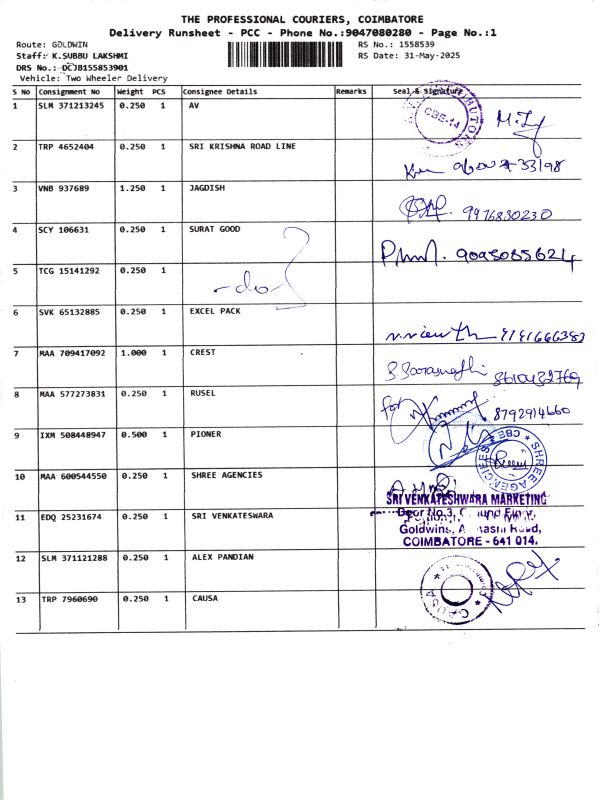 THE PROFESSIONAL COURIERS, COIMBATORE
Delivery Runsheet - PCC - Phone No.:9047080280 - Page No.:1
Route: GOLDWIN RS No.: 1558539
Staff: K.SUBBU LAKSHMI RS Date: 31-May-2025
DRS No.: DCJB155853901
Vehicle: Two Wheeler Delivery
S No Consignment No Weight PCS Consignee Details Remarks Seal & Signature
1 SLM 371213245 0.250 1 AV
CBE-14
2 TRP 4652404 0.250 1 SRI KRISHNA ROAD LINE
3 VNB 937689 1.250 1 JAGDISH
9976830230
4 SCY 106631 0.250 1 SURAT GOOD
9095085624
5 TCG 15141292 0.250 1
-do-
6 SVK 65132885 0.250 1 EXCEL PACK
7 MAA 709417092 1.000 1 CREST
8 MAA 577273831 0.250 1 RUSEL
for 8792914660
9 IXM 508448947 0.500 1 PIONER
SHREE AGENCIES * CBE *
10 MAA 600544550 0.250 1 SHREE AGENCIES
SRI VENKATESHWARA MARKETING
11 EDQ 25231674 0.250 1 SRI VENKATESWARA
Door No.3, Floor,
Goldwins, Road,
COIMBATORE - 641 014.
12 SLM 371121288 0.250 1 ALEX PANDIAN
13 TRP 7960690 0.250 1 CAUSA
CAUSA